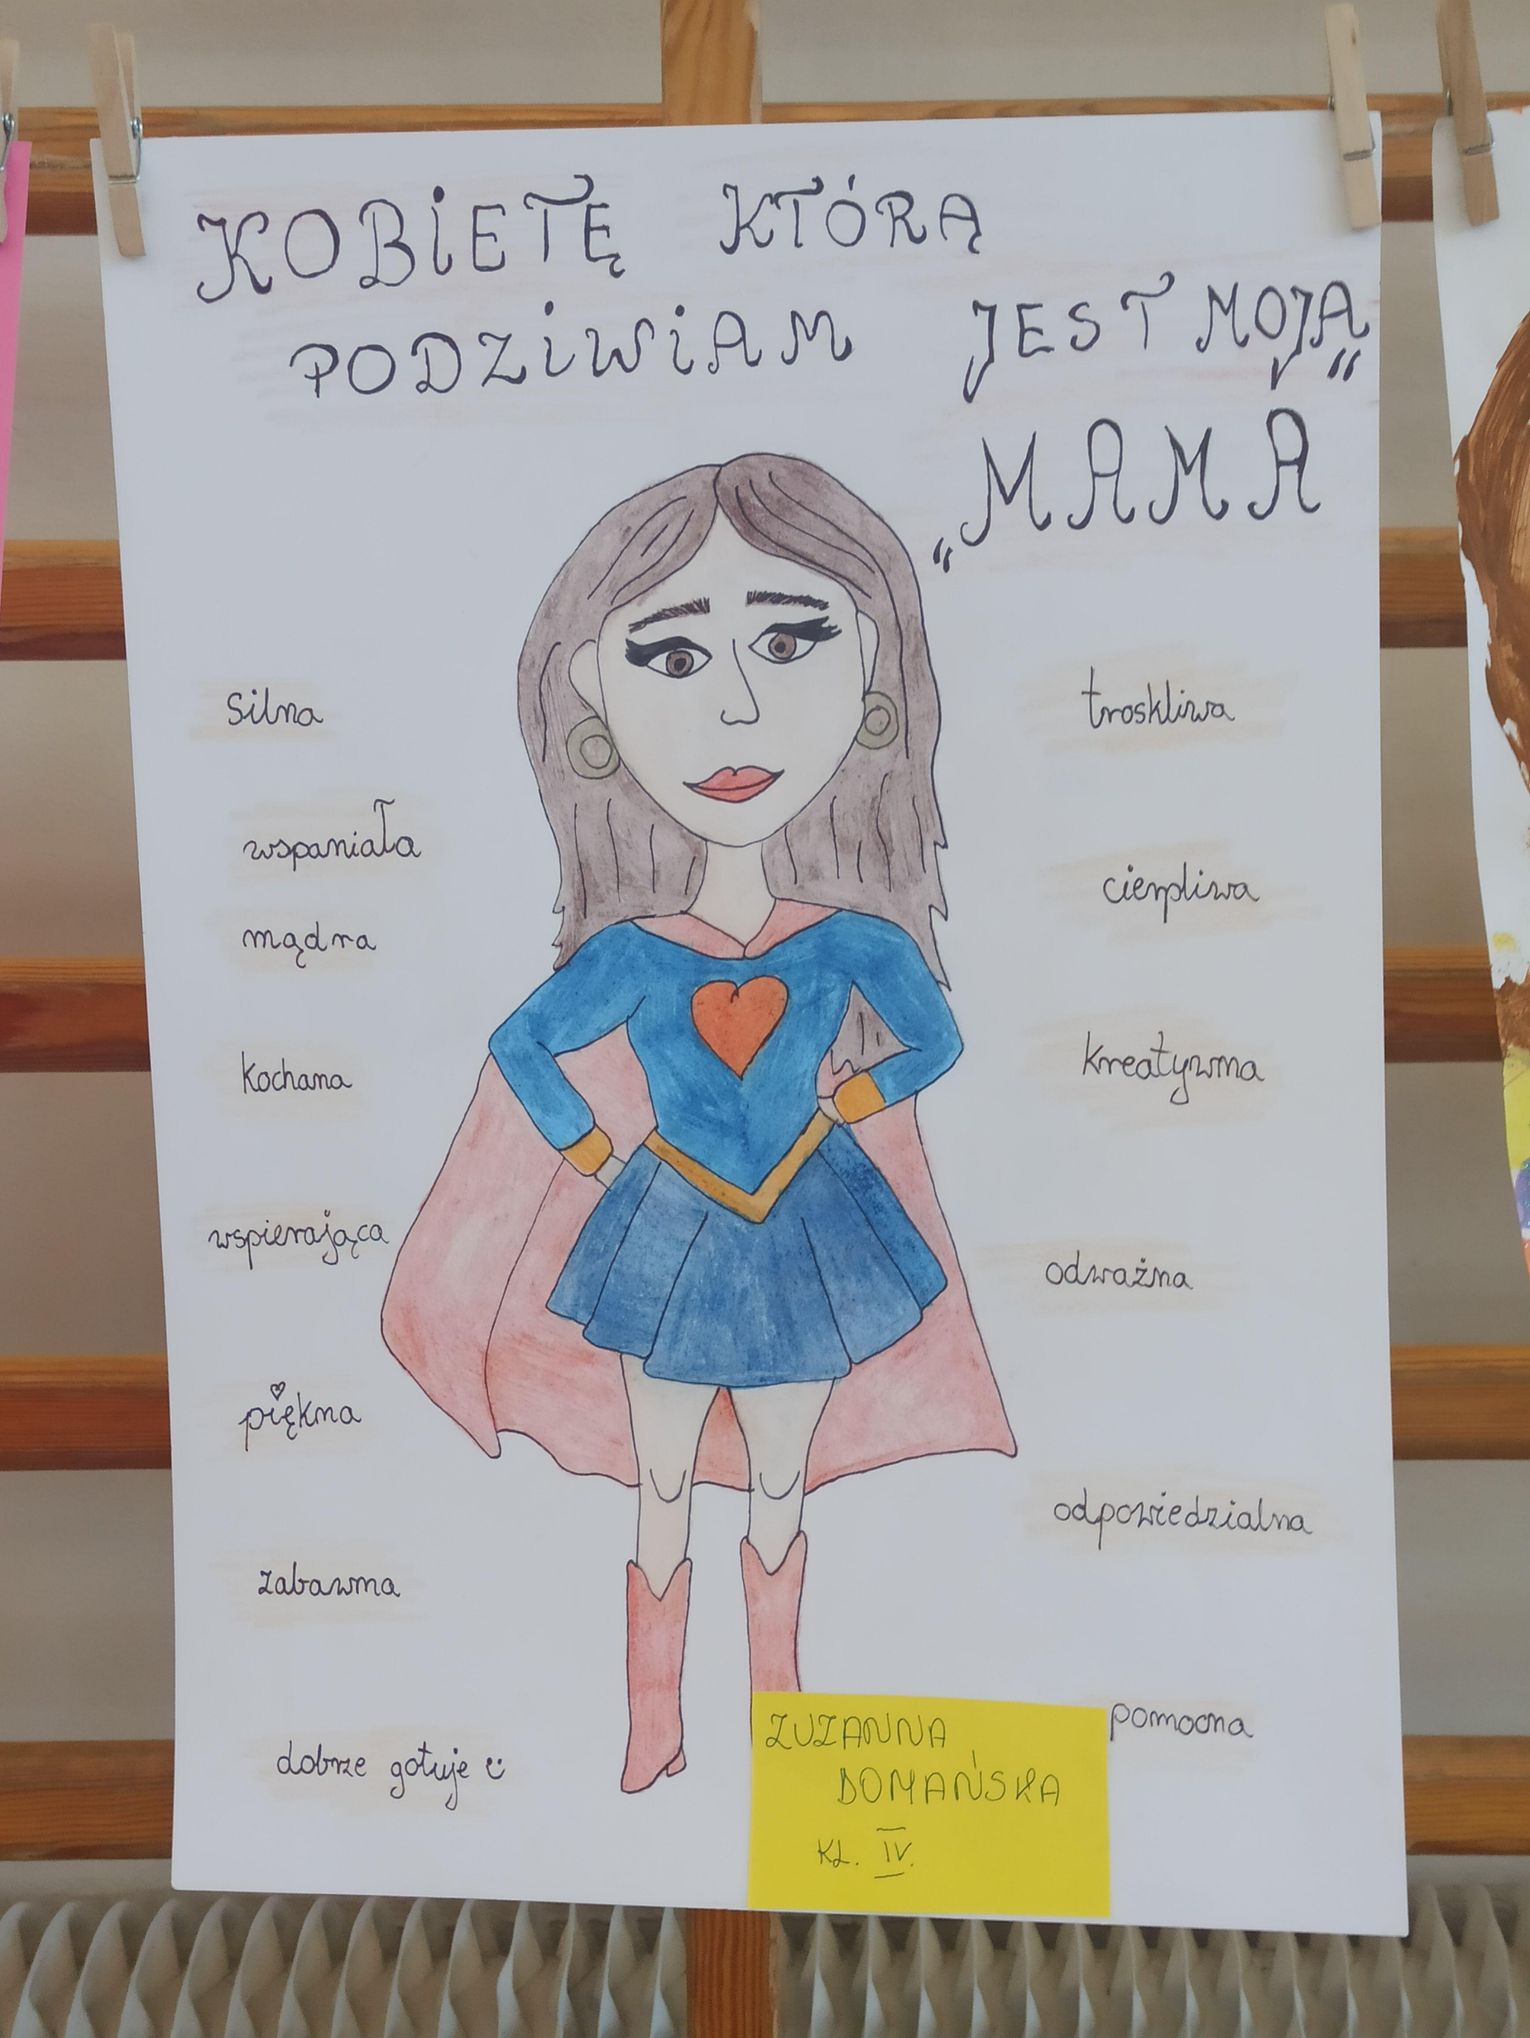 KOBIETĘ KTÓRĄ
PODZIWIAM JEST MOJĄ
„MAMA“
silna
wspaniała
mądra
kochana
wspierająca
piękna
zabawna
dobrze gotuje
troskliwa
cierpliwa
kreatywna
odważna
odpowiedzialna
pomocna
ZUZANNA
DOMAŃSKA
KL. IV.